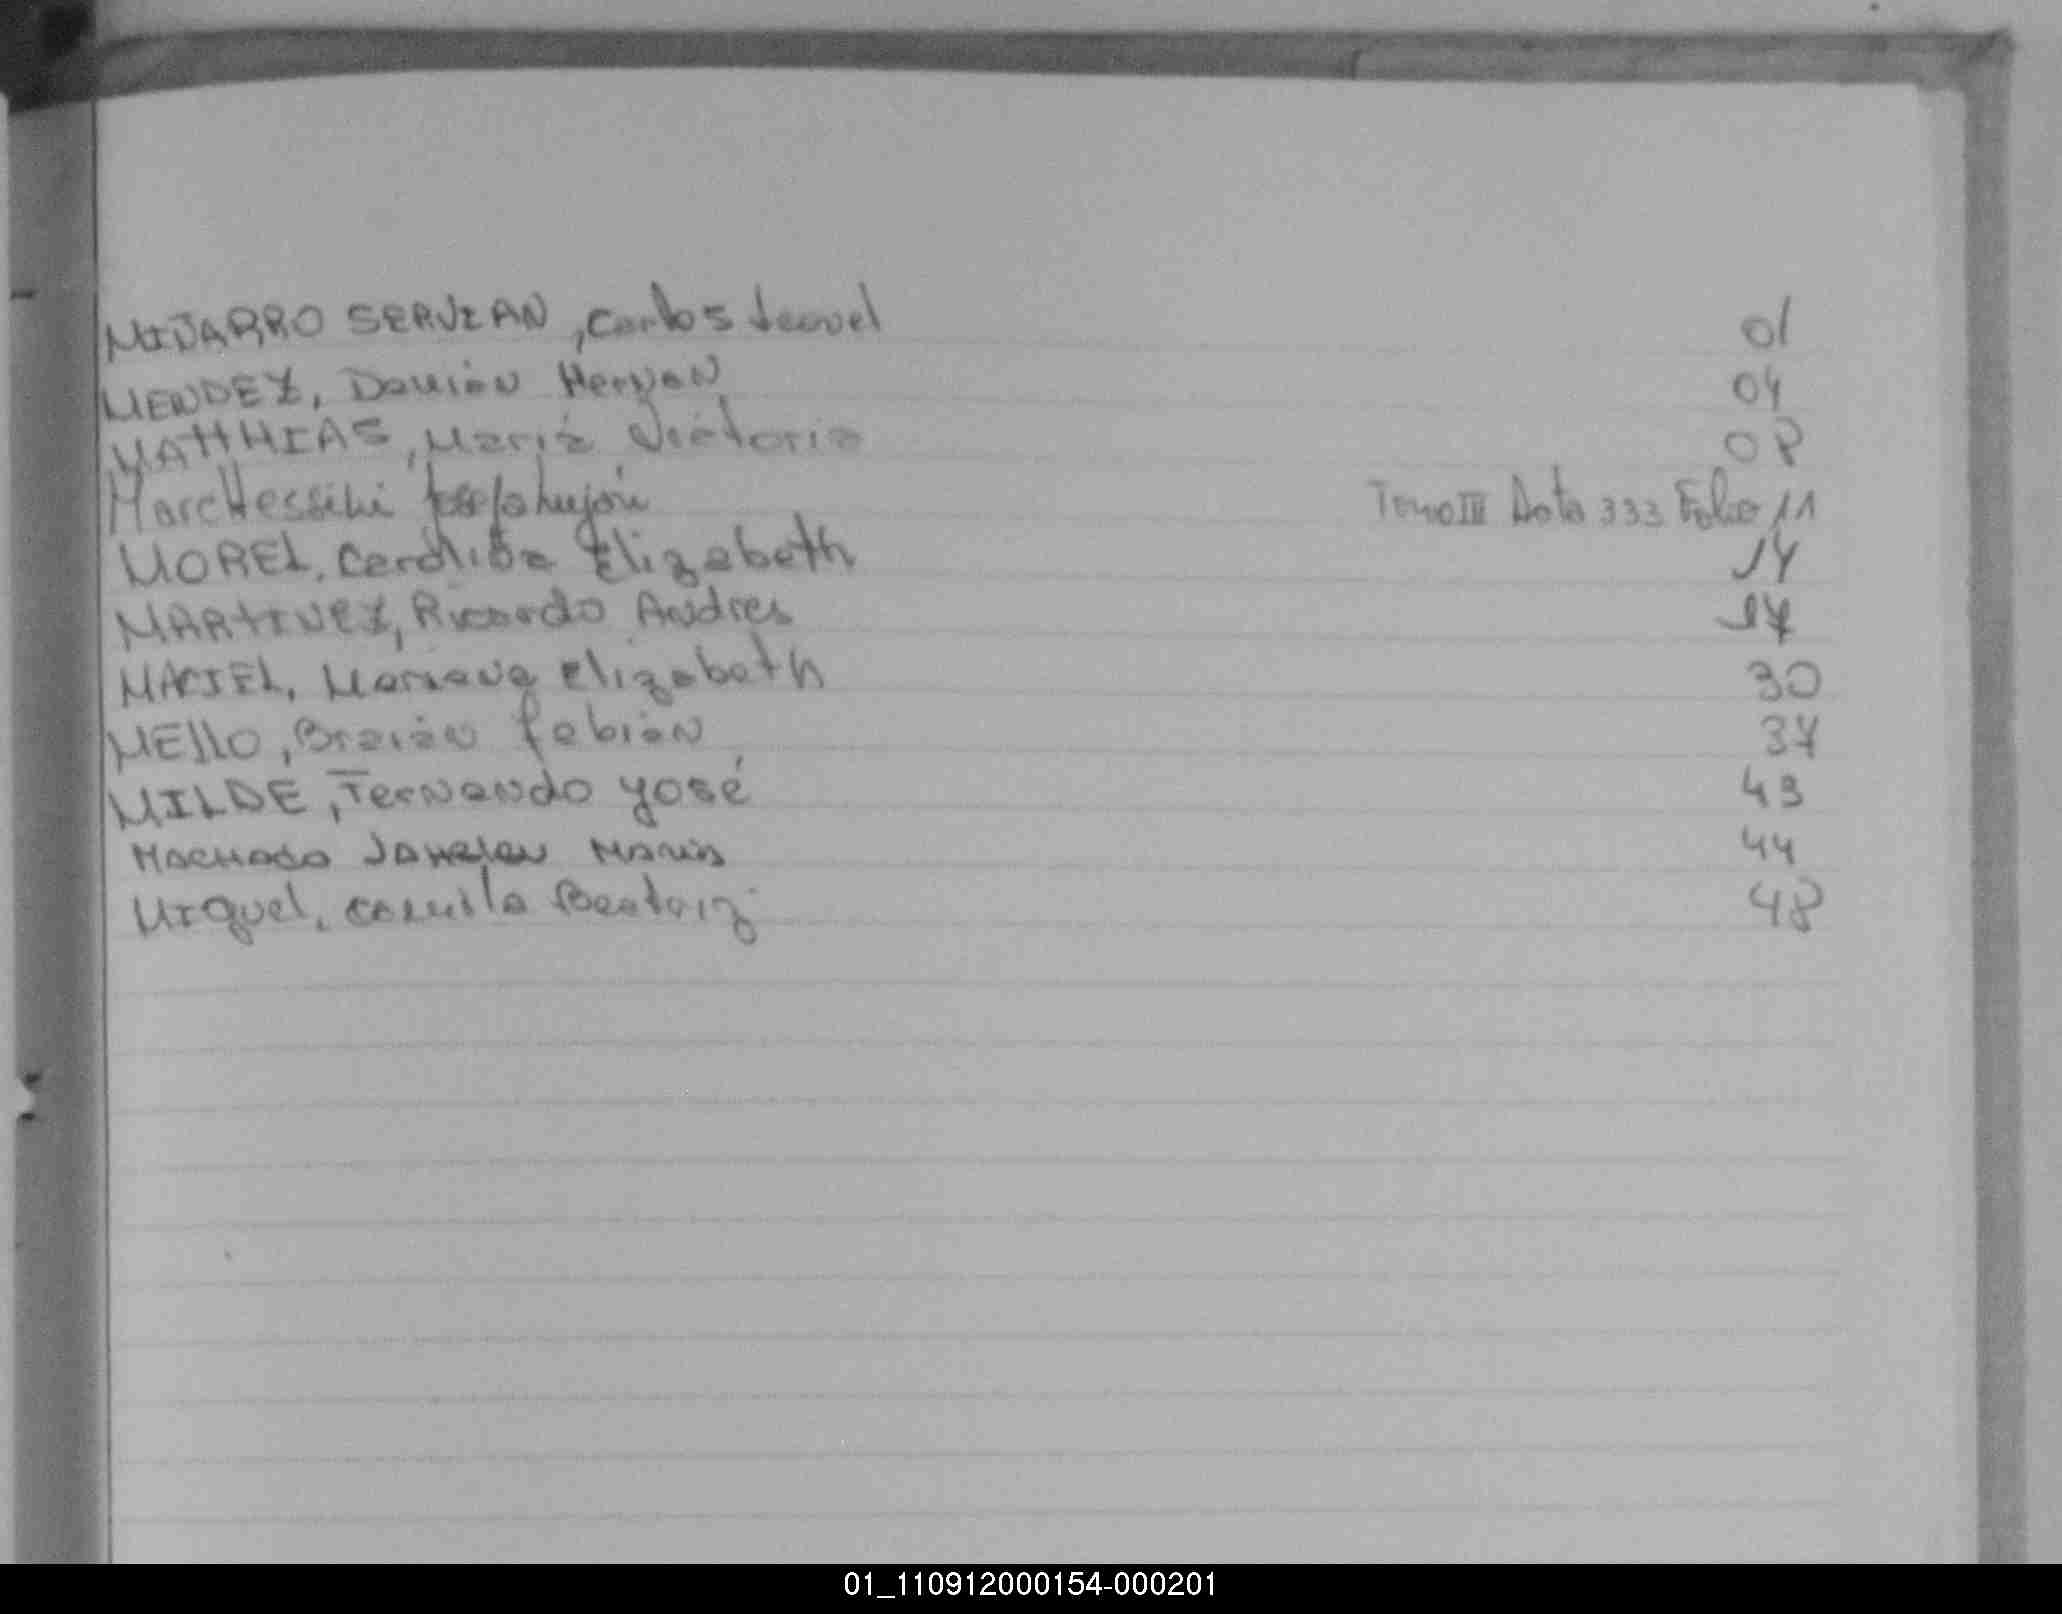 MIÑARRO SERVIAN, Carlos 01
MENDEZ, Damián Hernan 04
MATTHIAS, María Victoria 08
Tomo III Acta 333 Folio 11
MOREL, Carolina Elizabeth 14
MARTINEZ, Ricardo Andres 17
MACIEL, Mariana Elizabeth 30
MELLO, Braián Fabián 37
MILDE, Fernando José 43
MACHADO 44
Miguel, Camila Beatriz 48
01_110912000154-000201